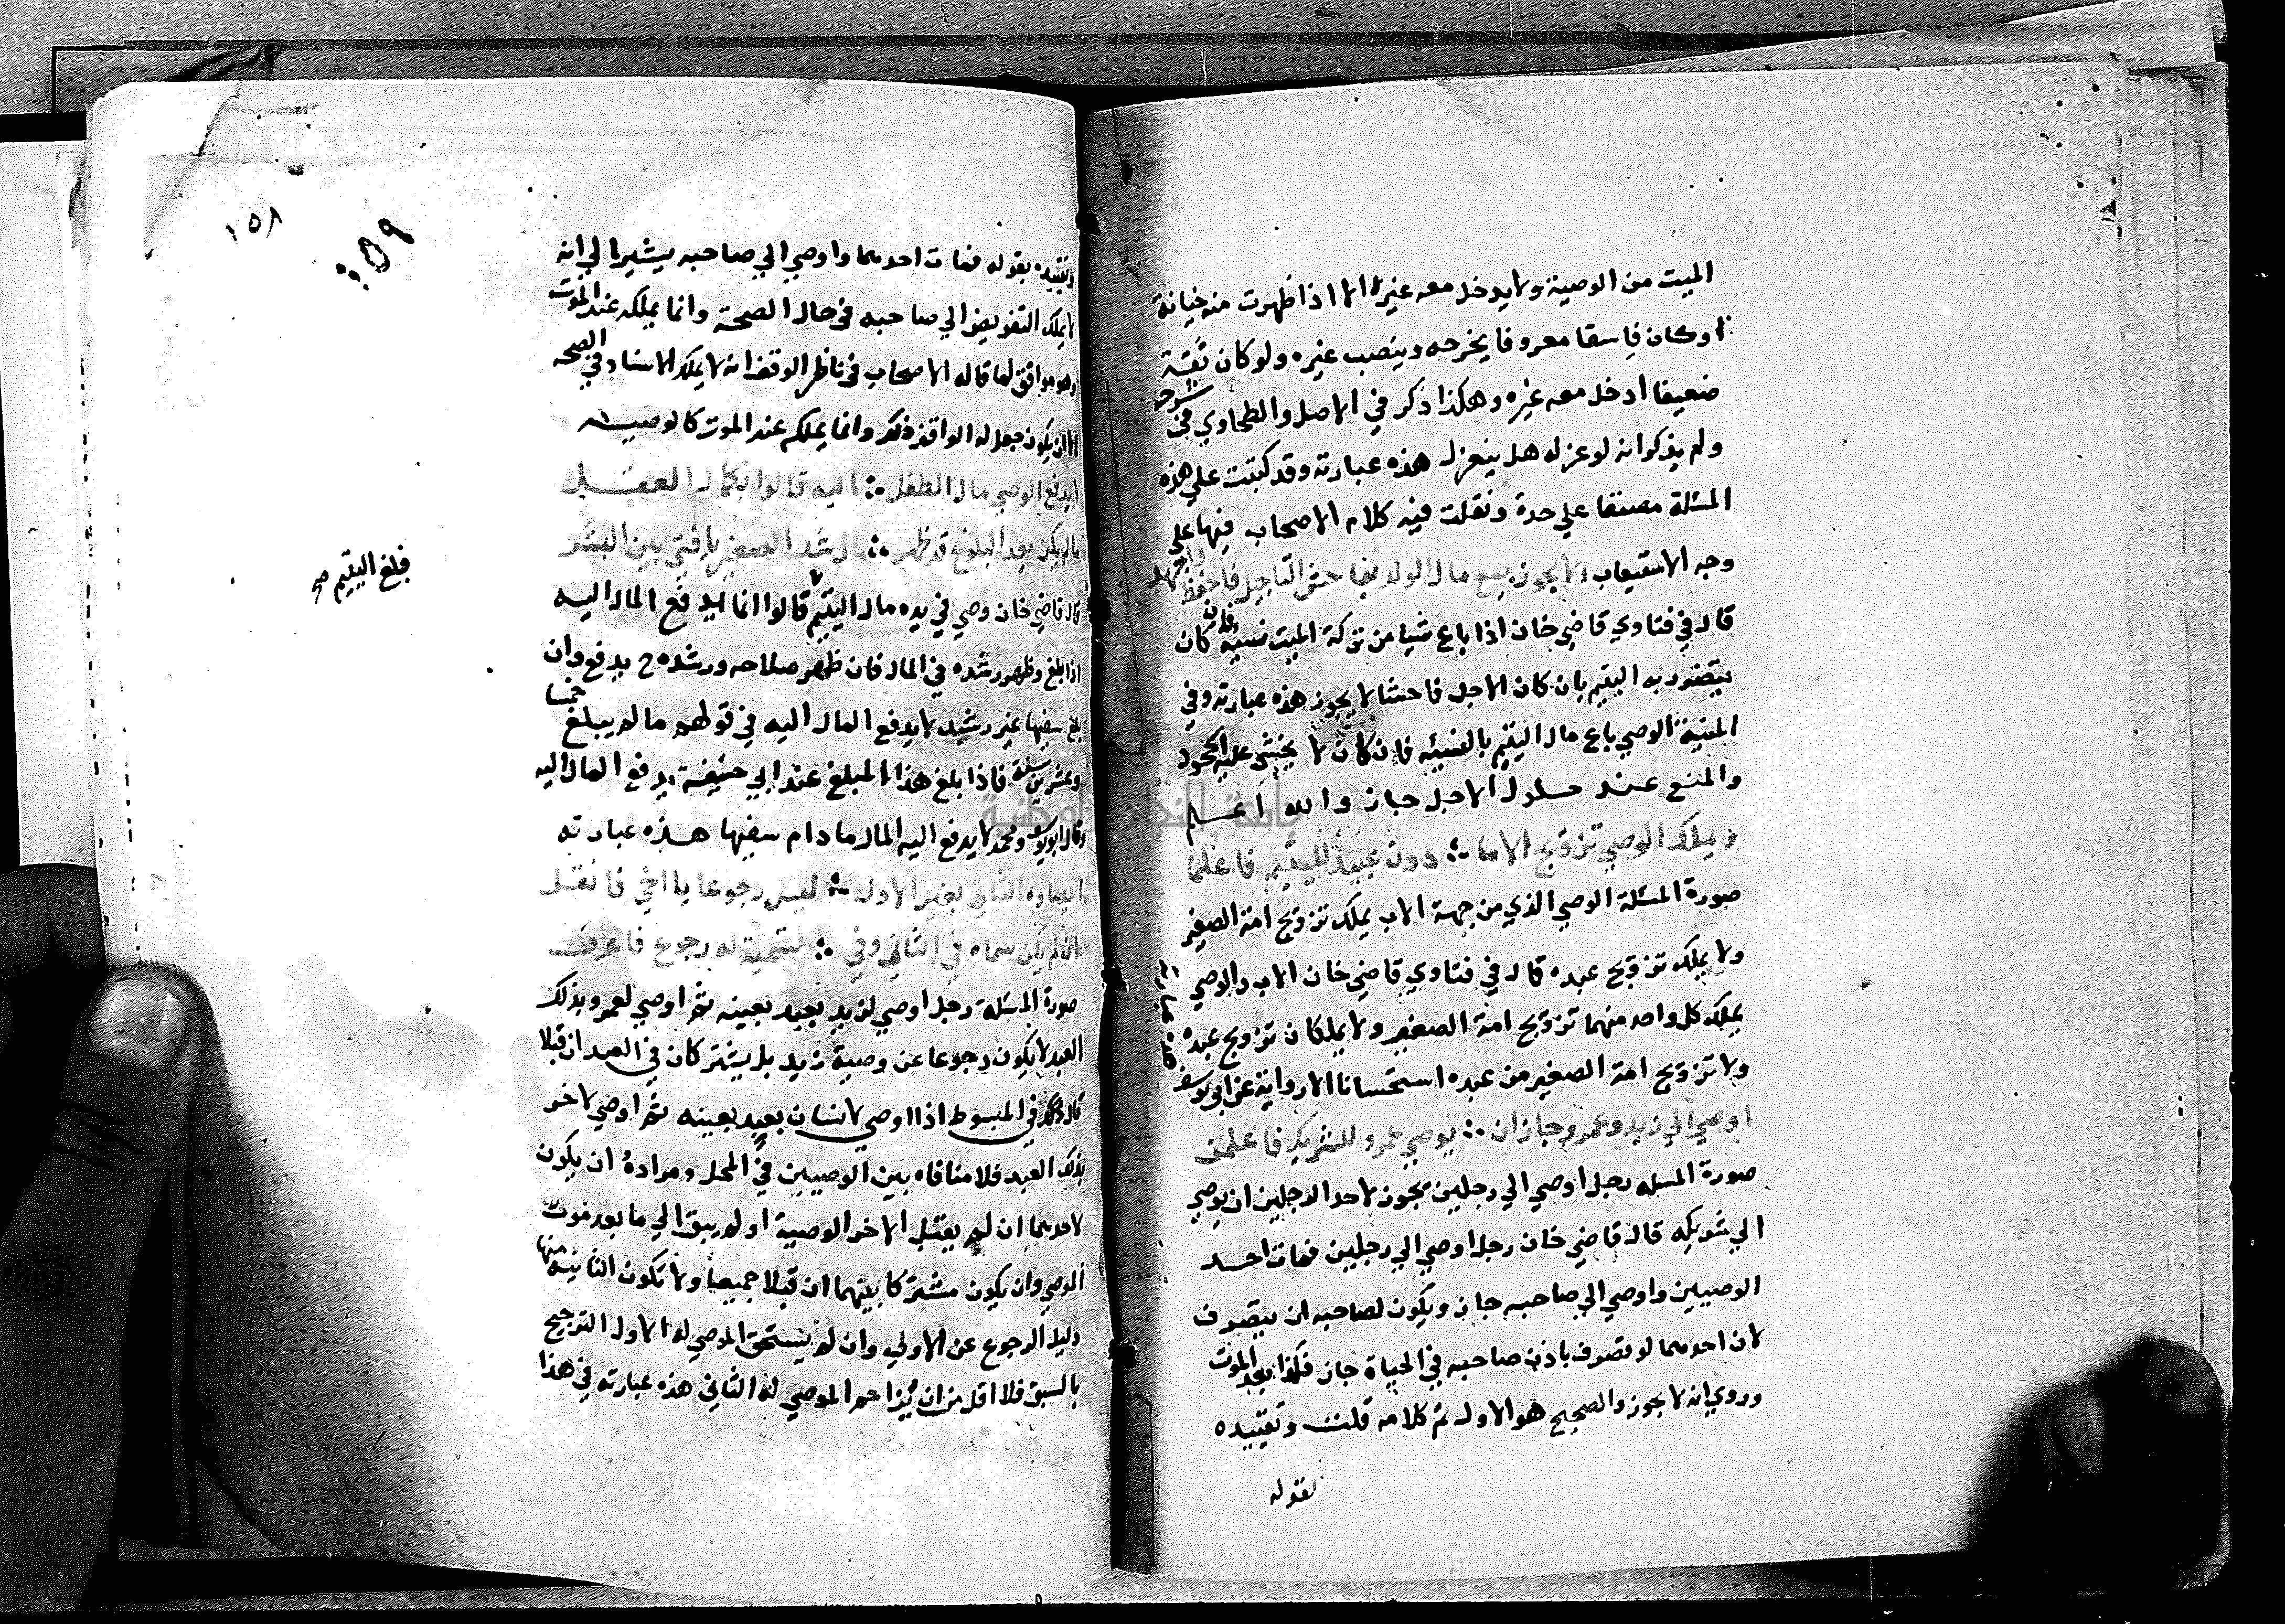 الميت من الوصية ولا يدخل معه غيره الا اذا ظهرت منه خيانة
او كان فاسقا معروفا يخرجه وينصب غيره ولو كان ثقة
ضعيفا ادخل معه غيره وهكذا ذكر في الاصل والطحاوي في شرحه
ولم يذكر انه لو عزله هل ينعزل هذه عبارته وقد كتبت علي هذه
المسئلة مصنفا علي حدة ونقلت فيه كلام الاصحاب فيها علي
وجه الاستيعاب ولا يجوز بيع مال الولد فاحش التاجيل فاحفظ واجهد
قال في فتاوي قاضي خان اذا باع شيا من تركة الميت نسية فان كان
يتضرر به اليتيم بان كان الاجل فاحشا لا يجوز هذه عبارته وفي
المنية الوصي باع مال اليتيم بالنسيئه فان كان لا يخشي عليه الجحود
والمنع عند حلول الاجل جاز والله اعلم
ويملك الوصي تزويج الاما ؞ دون عبيد لليتيم فاعلما
صورة المسئلة الوصي الذي من جهة الاب يملك تزويج امة الصغير
ولا يملك تزويج عبده قال في فتاوي قاضي خان الاب والوصي
يملك كل واحد منهما تزويج امة الصغير ولا يملكان تزويج عبده
ولا تزويج امة الصغير من عبده استحسانا الا رواية عن ابي يوسف
اوصي الي زيد وعمرو جاز ان ؞ يوصي عمرو للشريك فاعلمن
صورة المسله رجل اوصي الي رجلين يجوز لاحد الرجلين ان يوصي
الي شريكه قال قاضي خان رجل اوصي الي رجلين فمات احد
الوصيين واوصي الي صاحبه جاز ويكون لصاحبه ان يتصرف
لان احدهما لو تصرف باذن صاحبه في الحياة جاز فكذا بعد الموت
وروي انه لا يجوز والصحيح هو الاول تم كلامه قلت وتقييده
بقوله
١٥٨
١٥٩
وتقييده بقوله فمات احدهما واوصي الي صاحبه يشير الي انه
لا يملك التفويض الي صاحبه في حال الصحة وانما يملكه عند الموت
وهو موافق لما قاله الاصحاب في ناظر الوقف انه لا يملك الاسناد في الصحه
الا ان يكون جعل له الواقف ذلك وانما يملكه عند الموت كالوصيه
لا يدفع الوصي مال الطفل ؞ اليه قالوا بكمال العقل
ما لم يكن بعد البلوغ قد ظهر ؞ مال رشد الصغير يا فتي بين البشر
قال قاضي خان وصي في يده مال اليتيم قالوا انما يدفع المال اليه
فبلغ اليتيم صح
اذا بلغ وظهر رشده في المال فان ظهر صلاحه ورشده ح يدفع وان
بلغ سفيها غير رشيد لا يدفع المال اليه في قولهم ما لم يبلغ خمسا
وعشرين سنة فاذا بلغ هذا المبلغ عند ابي حنيفة يدفع المال اليه
وقال ابو يوسف ومحمد لا يدفع اليه المال ما دام سفيها هذه عبارته
ايصاوه الثاني بغير الاول ؞ ليس رجوعا يا اخي فانقل
ان لم يكن سماه في الثاني وفي ؞ تسمية له رجوع فاعرف
صورة المسئلة رجل اوصي لزيد بعبد بعينه ثم اوصي لعمرو بذلك
العبد لا يكون رجوعا عن وصية زيد بل يشتركان في العبد ان قبلا
قال في المبسوط اذا اوصي لانسان بعبد بعينه ثم اوصي لاخر
بذلك العبد فلا منافاه بين الوصيين في المحل ومراده ان يكون
لاحدهما ان لم يقبل الاخر الوصية او لم يبق الي ما بعد موت
الموصي وان يكون مشتركا بينهما ان قبلا جميعا ولا تكون الثانية منها
دليل الرجوع عن الاولي وان لم يستحق الموصي له الاول الترجيح
بالسبق فلا اقل من ان يزاحم الموصي له الثاني هذه عبارته في هذا